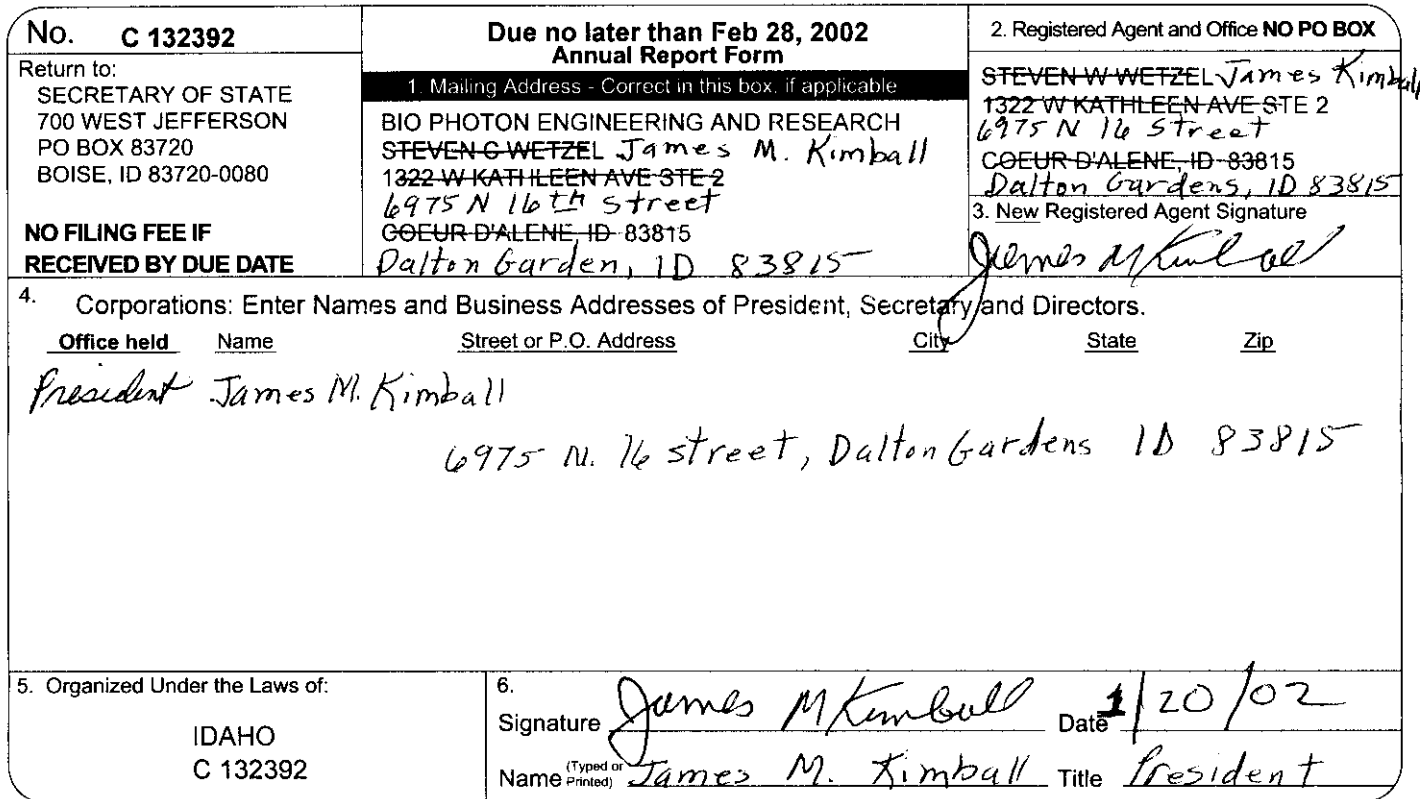 No. C 132392
Return to:
SECRETARY OF STATE
700 WEST JEFFERSON
PO BOX 83720
BOISE, ID 83720-0080
NO FILING FEE IF
RECEIVED BY DUE DATE
Due no later than Feb 28, 2002
Annual Report Form
1. Mailing Address - Correct in this box, if applicable
BIO PHOTON ENGINEERING AND RESEARCH
STEVEN C WETZEL James M. Kimball
1322 W KATHLEEN AVE STE 2
6975 N 16th street
COEUR D'ALENE, ID 83815
Dalton Garden, ID 83815
2. Registered Agent and Office NO PO BOX
STEVEN W WETZEL James Kimball
1322 W KATHLEEN AVE STE 2
6975 N 16 Street
COEUR D'ALENE, ID 83815
Dalton Gardens, ID 83815
3. New Registered Agent Signature
James M Kimball
4. Corporations: Enter Names and Business Addresses of President, Secretary and Directors.
Office held Name Street or P.O. Address City State Zip
President James M. Kimball
6975 N. 16 street, Dalton Gardens ID 83815
5. Organized Under the Laws of:
IDAHO
C 132392
6.
Signature James M Kimball Date 1/20/02
Name (Typed or Printed) James M. Kimball Title President